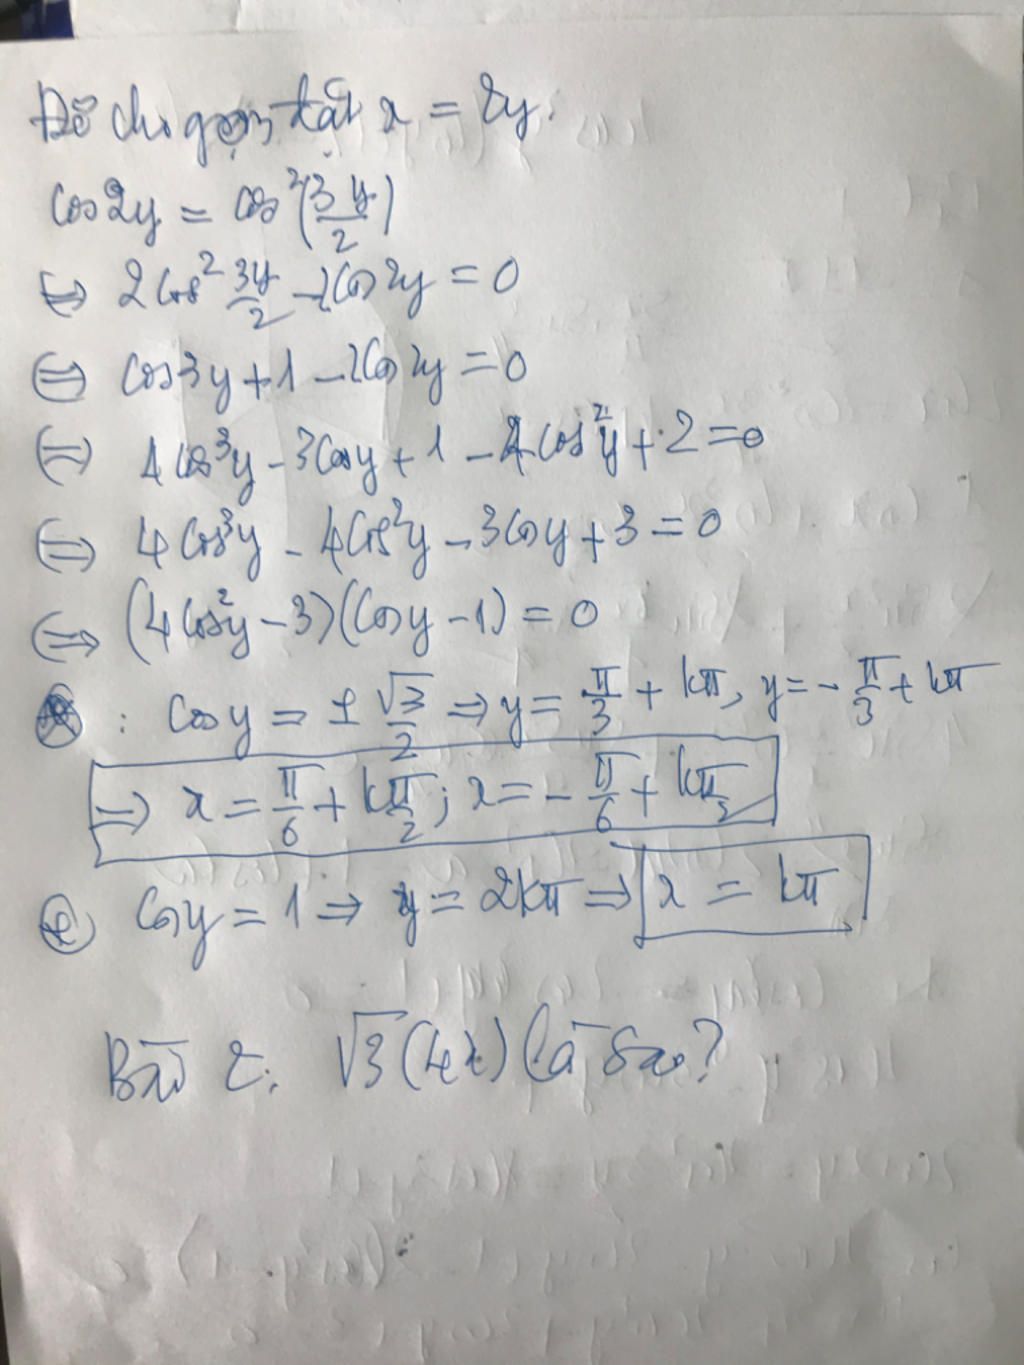 Để cho gọn đặt x = 2y.
cos2y = cos²(3y/2)
⇔ 2cos² 3y/2 - 2cos2y = 0
⇔ cos3y + 1 - 2cos2y = 0
⇔ 4cos³y - 3cosy + 1 - 4cos²y + 2 = 0
⇔ 4cos³y - 4cos²y - 3cosy + 3 = 0
⇔ (4cos²y - 3)(cosy - 1) = 0
: cosy = ± √3/2 ⇒ y = π/3 + kπ, y = - π/3 + kπ
⇒ x = π/6 + kπ/2; x = - π/6 + kπ/2
② cosy = 1 ⇒ y = 2kπ ⇒ x = kπ
Bài 2: √3(4x) là sao?